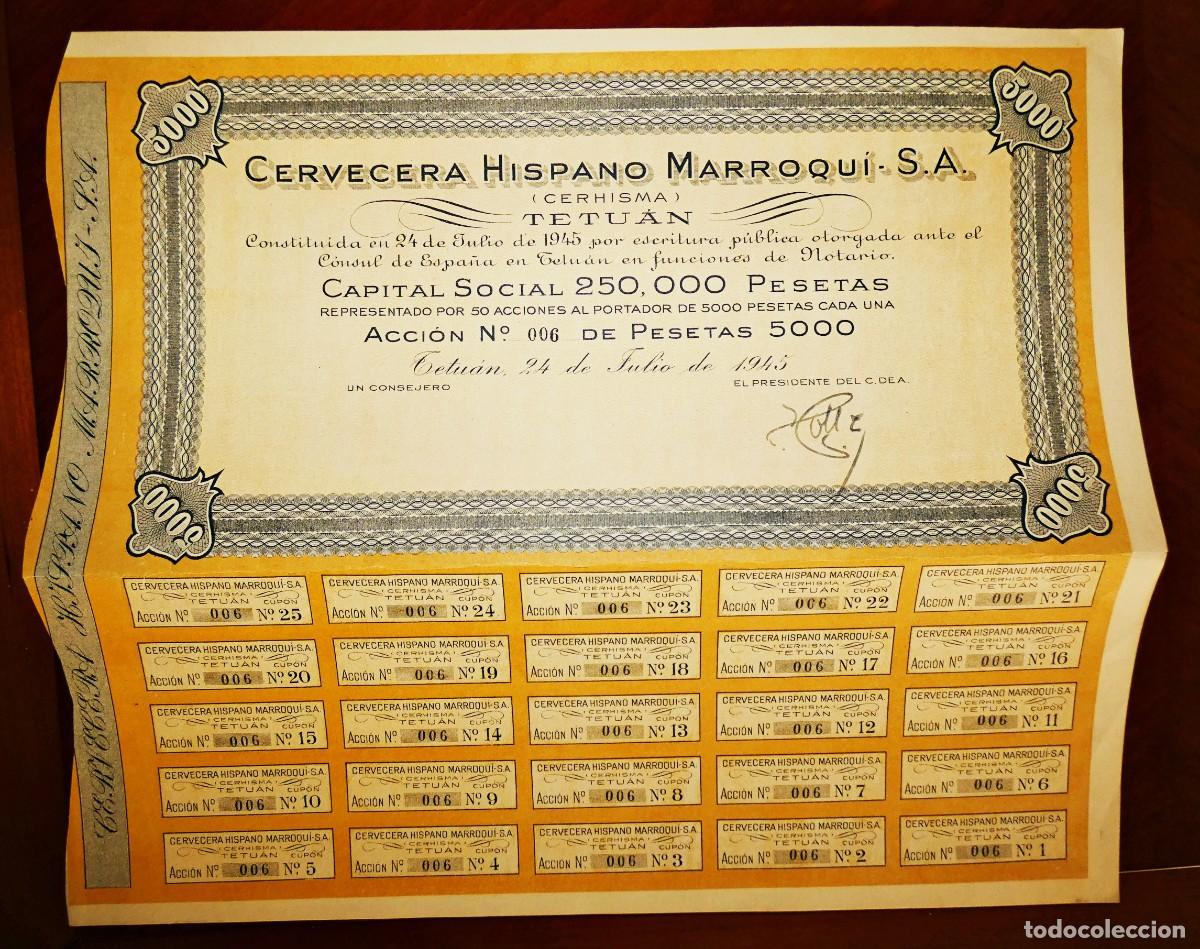 5000
5000
CERVECERA HISPANO MARROQUÍ-S.A.
(CERHISMA)
TETUÁN
Constituída en 24 de Julio de 1945 por escritura pública otorgada ante el
Cónsul de España en Tetuán en funciones de Notario.
CAPITAL SOCIAL 250,000 PESETAS
REPRESENTADO POR 50 ACCIONES AL PORTADOR DE 5000 PESETAS CADA UNA
ACCIÓN Nº 006 DE PESETAS 5000
Tetuán, 24 de Julio de 1945
UN CONSEJERO
EL PRESIDENTE DEL C. DE A.
5000
5000
CERVECERA HISPANO MARROQUI-S.A.
CERVECERA HISPANO MARROQUÍ-S.A.
(CERHISMA)
TETUÁN CUPÓN
ACCIÓN Nº 006 Nº 25
CERVECERA HISPANO MARROQUÍ-S.A.
(CERHISMA)
TETUÁN CUPÓN
ACCIÓN Nº 006 Nº 24
CERVECERA HISPANO MARROQUÍ-S.A.
(CERHISMA)
TETUÁN CUPÓN
ACCIÓN Nº 006 Nº 23
CERVECERA HISPANO MARROQUÍ-S.A.
(CERHISMA)
TETUÁN CUPÓN
ACCIÓN Nº 006 Nº 22
CERVECERA HISPANO MARROQUÍ-S.A.
(CERHISMA)
TETUÁN CUPÓN
ACCIÓN Nº 006 Nº 21
CERVECERA HISPANO MARROQUÍ-S.A.
(CERHISMA)
TETUÁN CUPÓN
ACCIÓN Nº 006 Nº 20
CERVECERA HISPANO MARROQUÍ-S.A.
(CERHISMA)
TETUÁN CUPÓN
ACCIÓN Nº 006 Nº 19
CERVECERA HISPANO MARROQUÍ-S.A.
(CERHISMA)
TETUÁN CUPÓN
ACCIÓN Nº 006 Nº 18
CERVECERA HISPANO MARROQUÍ-S.A.
(CERHISMA)
TETUÁN CUPÓN
ACCIÓN Nº 006 Nº 17
CERVECERA HISPANO MARROQUÍ-S.A.
(CERHISMA)
TETUÁN CUPÓN
ACCIÓN Nº 006 Nº 16
CERVECERA HISPANO MARROQUÍ-S.A.
(CERHISMA)
TETUÁN CUPÓN
ACCIÓN Nº 006 Nº 15
CERVECERA HISPANO MARROQUÍ-S.A.
(CERHISMA)
TETUÁN CUPÓN
ACCIÓN Nº 006 Nº 14
CERVECERA HISPANO MARROQUÍ-S.A.
(CERHISMA)
TETUÁN CUPÓN
ACCIÓN Nº 006 Nº 13
CERVECERA HISPANO MARROQUÍ-S.A.
(CERHISMA)
TETUÁN CUPÓN
ACCIÓN Nº 006 Nº 12
CERVECERA HISPANO MARROQUÍ-S.A.
(CERHISMA)
TETUÁN CUPÓN
ACCIÓN Nº 006 Nº 11
CERVECERA HISPANO MARROQUÍ-S.A.
(CERHISMA)
TETUÁN CUPÓN
ACCIÓN Nº 006 Nº 10
CERVECERA HISPANO MARROQUÍ-S.A.
(CERHISMA)
TETUÁN CUPÓN
ACCIÓN Nº 006 Nº 9
CERVECERA HISPANO MARROQUÍ-S.A.
(CERHISMA)
TETUÁN CUPÓN
ACCIÓN Nº 006 Nº 8
CERVECERA HISPANO MARROQUÍ-S.A.
(CERHISMA)
TETUÁN CUPÓN
ACCIÓN Nº 006 Nº 7
CERVECERA HISPANO MARROQUÍ-S.A.
(CERHISMA)
TETUÁN CUPÓN
ACCIÓN Nº 006 Nº 6
CERVECERA HISPANO MARROQUÍ-S.A.
(CERHISMA)
TETUÁN CUPÓN
ACCIÓN Nº 006 Nº 5
CERVECERA HISPANO MARROQUÍ-S.A.
(CERHISMA)
TETUÁN CUPÓN
ACCIÓN Nº 006 Nº 4
CERVECERA HISPANO MARROQUÍ-S.A.
(CERHISMA)
TETUÁN CUPÓN
ACCIÓN Nº 006 Nº 3
CERVECERA HISPANO MARROQUÍ-S.A.
(CERHISMA)
TETUÁN CUPÓN
ACCIÓN Nº 006 Nº 2
CERVECERA HISPANO MARROQUÍ-S.A.
(CERHISMA)
TETUÁN CUPÓN
ACCIÓN Nº 006 Nº 1
todocoleccion